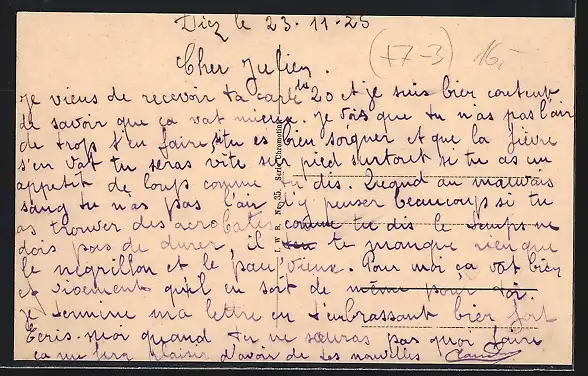 Diez le 23-11-25
(+7-3) 16,-
Cher Julien.
Je viens de recevoir ta carte du 20 et je suis bien content
de savoir que ça vat mieux. Je vois que tu n'as pas l'air
de trop t'en faire, si tu es bien soigner et que la fièvre
s'en vat tu seras vite sur pied surtout si tu as un
appetit de loup comme tu dis. Quand au mauvais
sang tu n'as pas l'air d'y penser beaucoup si tu
as trouver des acrobates comme tu dis le temps ne
dois pas de durer, il te manque rien que
le negrillon et le pauv' vieux. Pour moi ça vat bien
et vivement qu'il en soit de même pour toi.
Je termine ma lettre en t'embrassant bien fort
Ecris-moi quand tu ne sauras pas quoi faire
ça me fera plaisir d'avoir de tes nouvelles
I. W. B. No. 35. Serie Chromotint